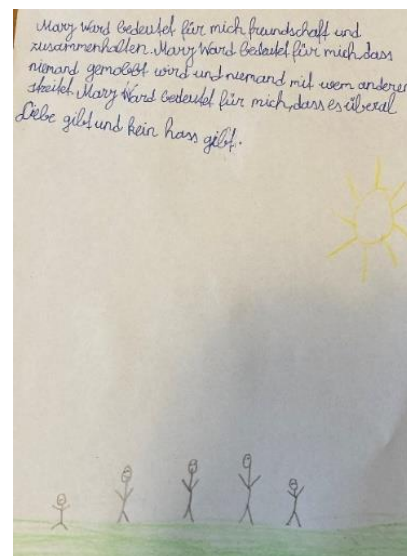 Mary Ward bedeutet für mich freundschaft und
zusammenhalten. Mary Ward bedeutet für mich, dass
niemand gemobbt wird und niemand mit wem anderen
streitet. Mary Ward bedeutet für mich, dass es überal
Liebe gibt und kein hass gibt.